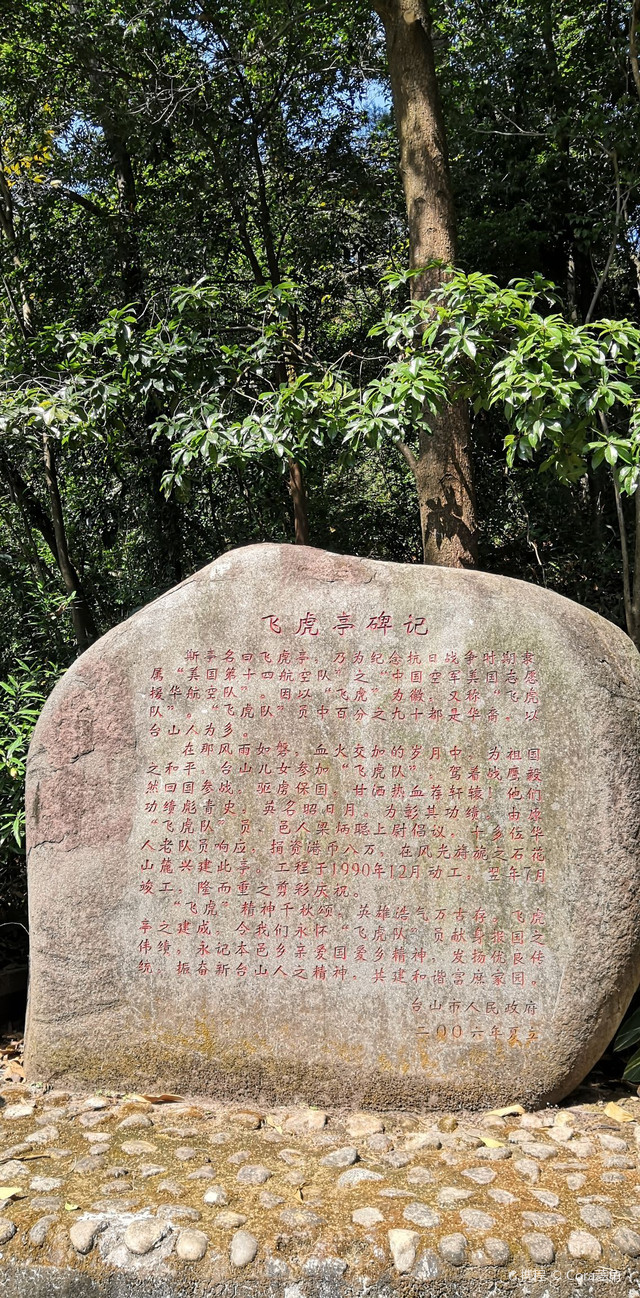 飞虎亭碑记
斯亭名曰飞虎亭，乃为纪念抗日战争时期隶
属“美国第十四航空队”之“中国空军美国志愿
援华航空队”。因以“飞虎”为徽，又称“飞虎
队”。“飞虎队”员中百分之九十都是华裔，以
台山人为多。
在那风雨如磐，血火交加的岁月中，为祖国
之和平，台山儿女参加“飞虎队”，驾着战鹰毅
然回国参战。驱虏保国，甘洒热血荐轩辕！他们
功绩彪青史，英名昭日月。为彰其功绩，由旅
“飞虎队”员，邑人梁炳聪上尉倡议，十多位华
人老队员响应，捐资港币八万，在风光旖旎之石花
山麓兴建此亭。工程于1990年12月动工，翌年7月
竣工，隆而重之剪彩庆祝。
“飞虎”精神千秋颂，英雄浩气万古存，飞虎
亭之建成，令我们永怀“飞虎队”员献身报国之
伟绩，永记本邑乡亲爱国爱乡精神，发扬优良传
统，振奋新台山人之精神，共建和谐富庶家园。
台山市人民政府
二00六年夏立